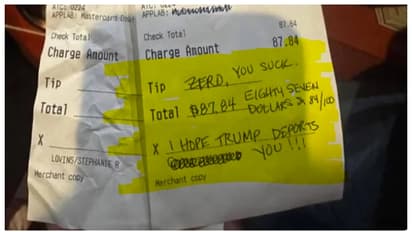 ATC: 0224
APPLAB: Mastercard
APPLAB:
Check Total 87.84
Charge Amount 87.84
Tip ZERO, YOU SUCK.
Total $87.84 EIGHTY SEVEN
DOLLARS 84/100
X I HOPE TRUMP DEPORTS
YOU!!!
Merchant copy
Check Total
Charge Amount
Tip
Total
X
LOVINS/STEPHANIE R
Merchant copy